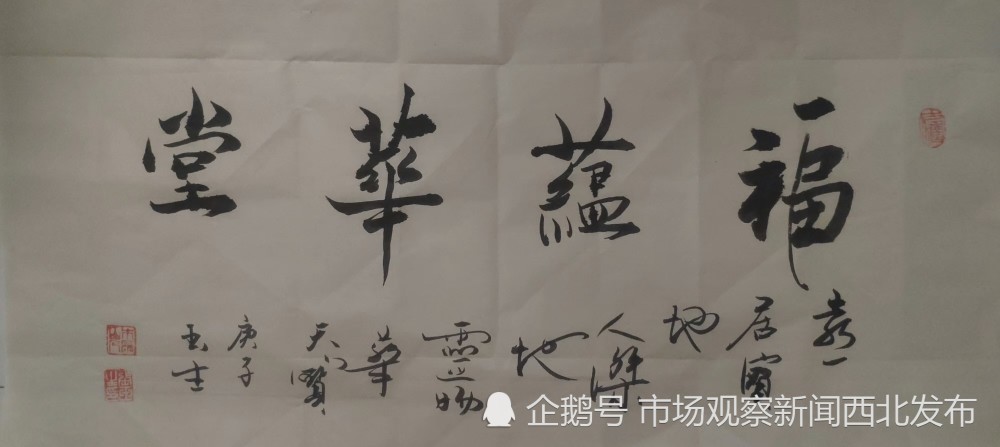 福蘊華堂
居寶
地
人傑
地
靈物
華
庚子
企鹅号 市场观察新闻西北发布